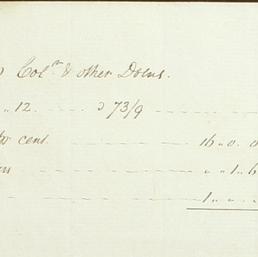 Col^n & other Docus.
" 12. 73/9
cent. 16 " 0 "
" 1 " 6
1 " "